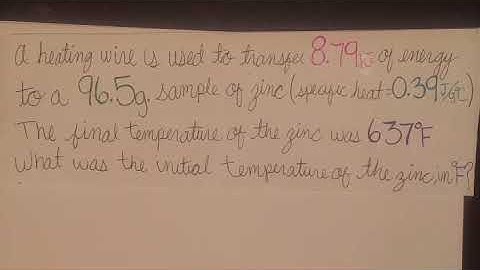 A heating wire is used to transfer 8.79kJ of energy
to a 96.5g. sample of zinc (specific heat=0.39J/g°C)
The final temperature of the zinc was 637°F
What was the initial temperature of the zinc, in °F?